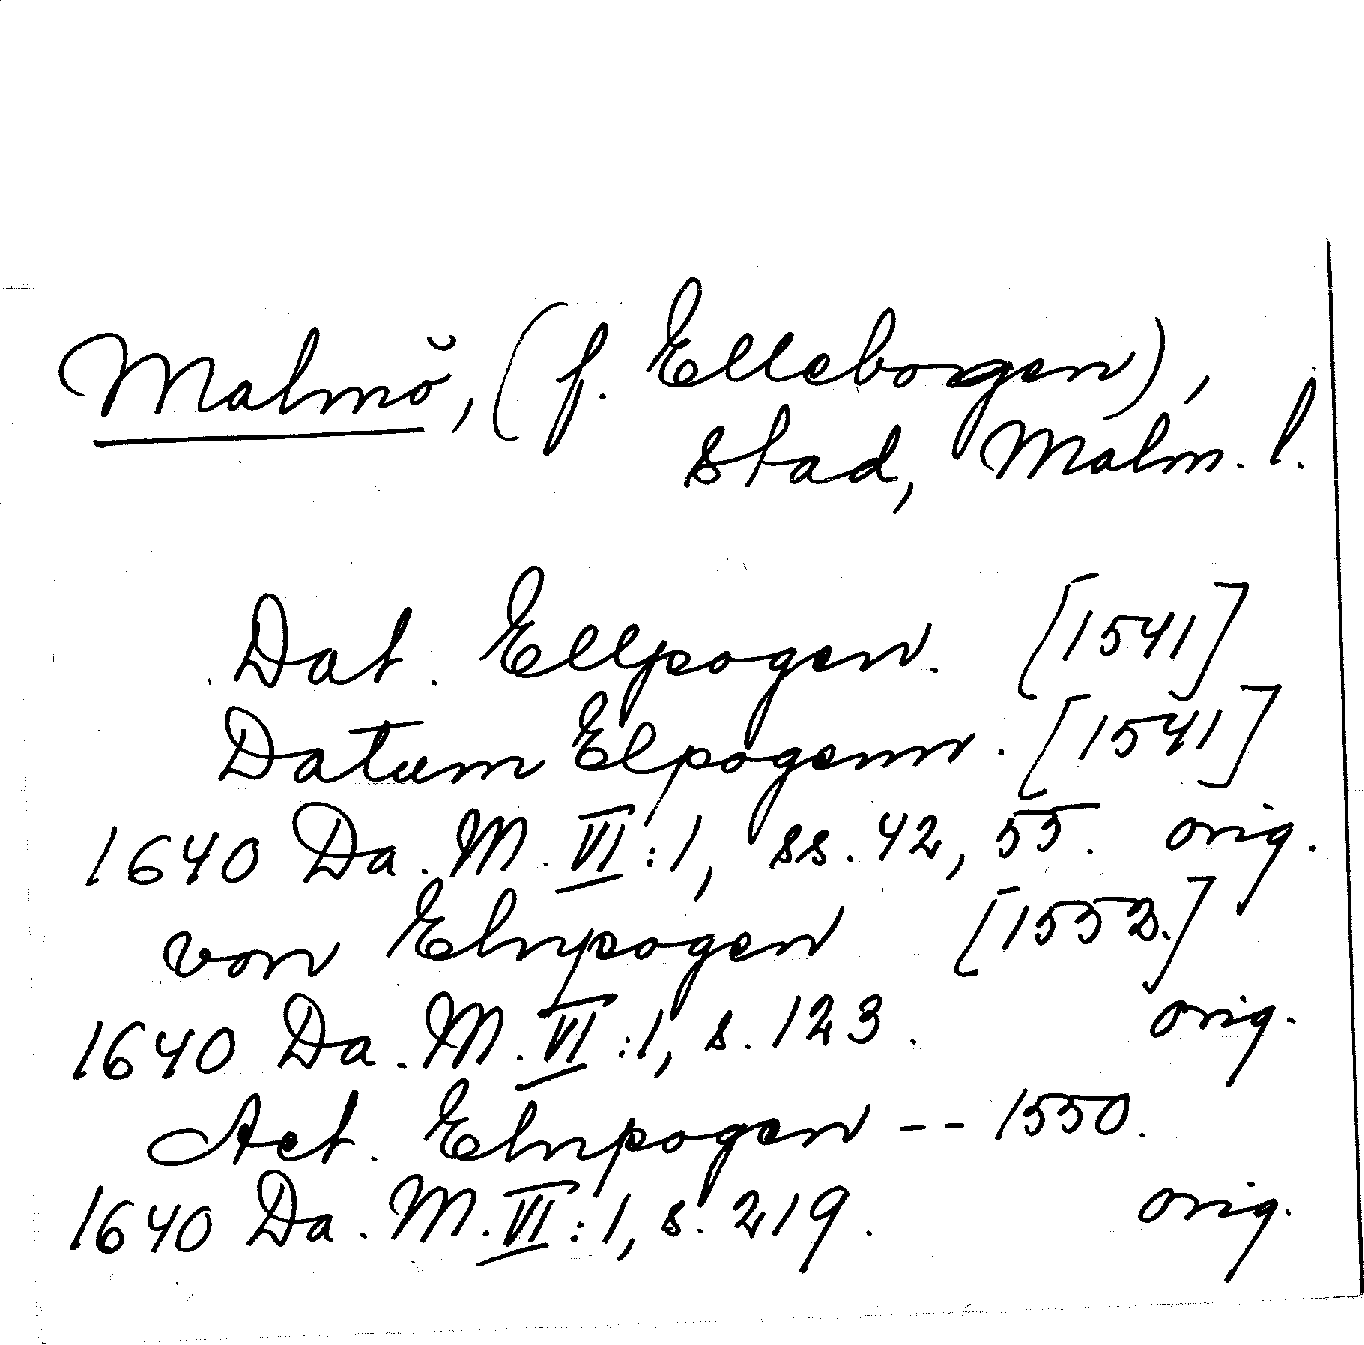 Malmö, (f. Elleborgen),
stad, Malm. l.
Dat. Ellpogen. [1541]
Datum Elpogenn. [1541]
1640 Da. M. VI:1, ss. 42, 55. orig.
von Elnpogen [1552.]
1640 Da. M. VI:1, s. 123. orig.
Act. Elnpogen -- 1550.
1640 Da. M. VI:1, s. 219. orig.